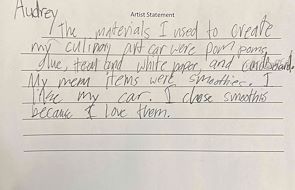 Audrey
Artist Statement
The materials I used to create
my culinary art car were pom poms,
glue, teal and white paper, and cardboard.
My menu items were smoothies. I
like my car. I chose smoothis
because I love them.